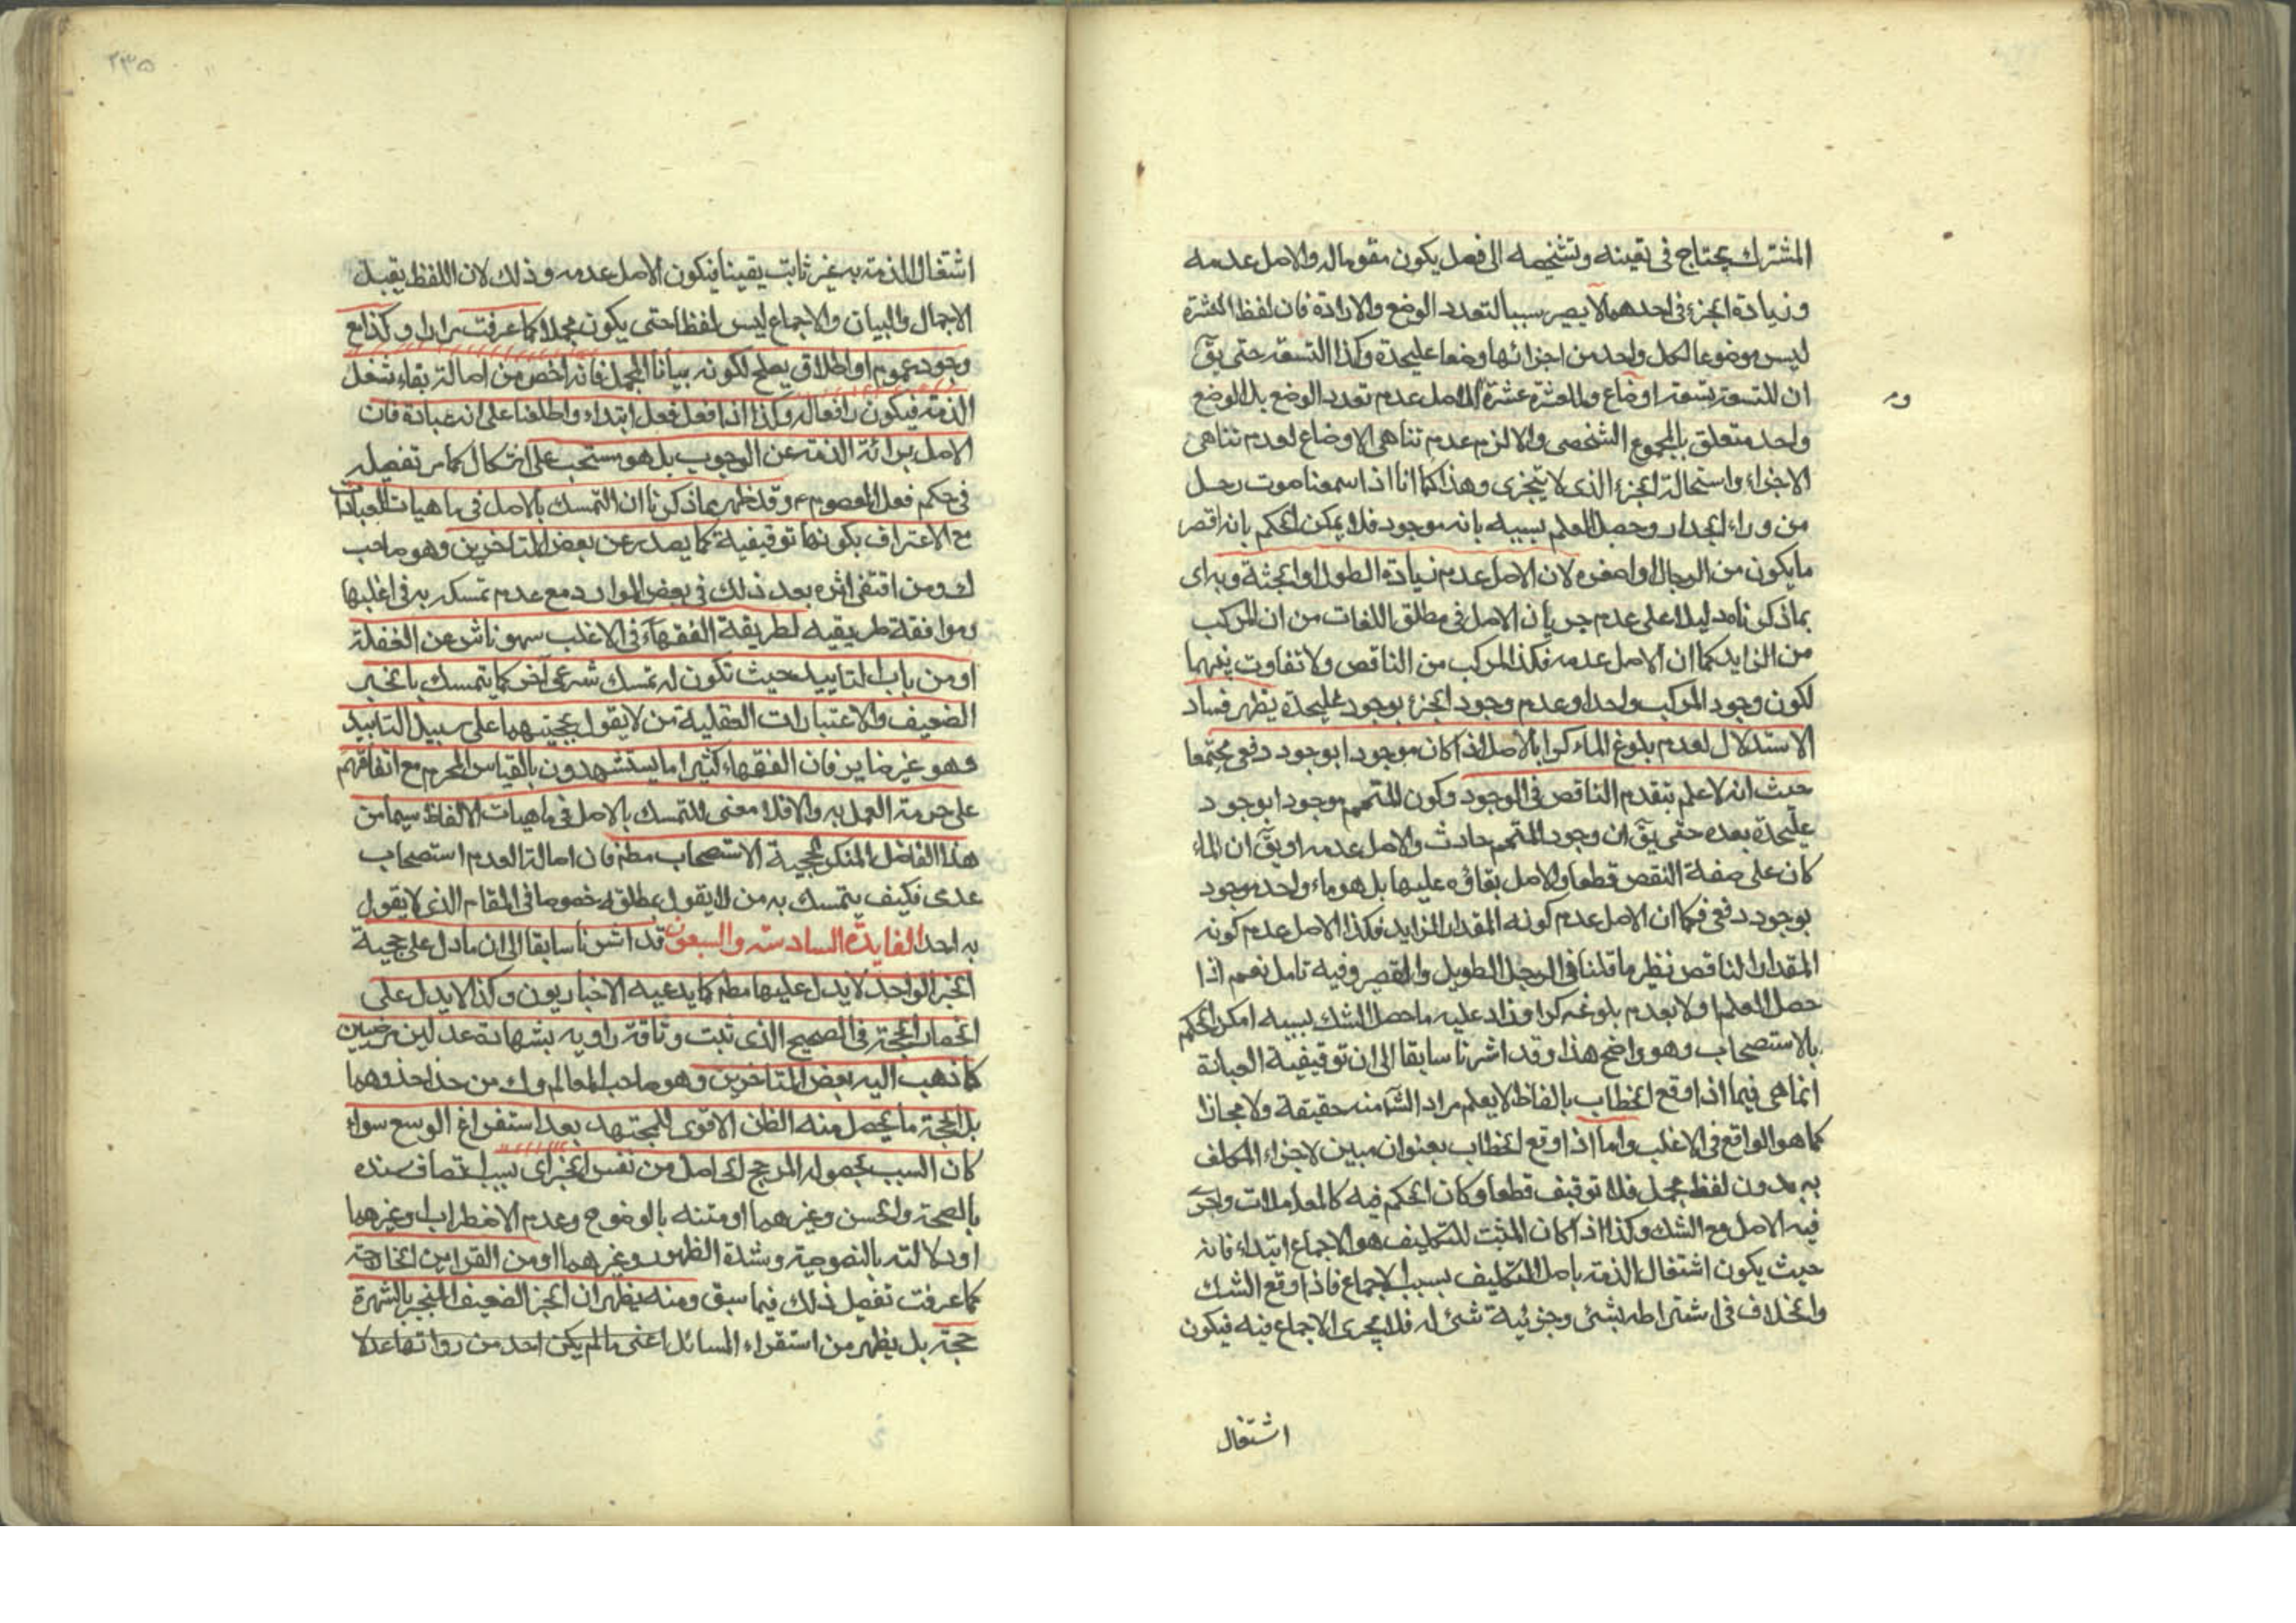 المشترك يحتاج في تعينه وتشخيصه الى فصل يكون مقوما له والاصل عدمه
وزيادة الجزء في احدهما لا يصير سببا لتعدد الوضع والارادة فان لفظ العشرة
ليس موضوعا لكل واحد من اجزائها وضعا عليحدة وكذا التسعة حتى يق
ان للتسعة تسعة اوضاع وللعشرة عشرة الاصل عدم تعدد الوضع بل الوضع
وم
واحد متعلق بالمجموع الشخصي والا لزم عدم تناهي الاوضاع لعدم تناهي
الاجزاء واستحالة الجزء الذي لا يتجزى وهذا كما انا اذا سمعنا صوت رجل
من وراء الجدار وحصل العلم بسببه بانه موجود فلا يمكن الحكم بانه اقصر
ما يكون من الرجال او اصغره لان الاصل عدم زيادة الطول او الجثة
بما ذكرناه دليلا على عدم جريان الاصل في مطلق اللغات من ان المركب
من الزايد كما ان الاصل عدمه فكذا المركب من الناقص ولا تفاوت بينهما
لكون وجود المركب واحدا وعدم وجود الجزء بوجود عليحدة يظهر فساد
الاستدلال لعدم بلوغ الماء كرا بالاصل اذا كان موجودا بوجود دفعي مجتمعا
حيث انه لا علم بتقدم الناقص في الوجود وكون المتمم موجودا بوجود
عليحدة بعده حتى يق ان وجود المتمم حادث والاصل عدمه او يق ان الماء
كان على صفة النقص قطعا والاصل بقاؤه عليها بل هو ماء واحد موجود
بوجود دفعي فكما ان الاصل عدم كونه المقدار الزايد فكذا الاصل عدم كونه
المقدار الناقص نظير ما قلنا في الرجل الطويل والقصير وفيه تامل نعم اذا
حصل العلم اولا بعدم بلوغه كرا وزاد عليه ما حصل الشك بسببه امكن الحكم
بالاستصحاب وهو واضح هذا وقد اشرنا سابقا الى ان توقيفية العبادة
انما هي فيما اذا وقع الخطاب بالفاظ لا يعلم مراد الش منه حقيقة ولا مجازا
كما هو الواقع في الاغلب واما اذا وقع الخطاب بعنوان مبين لاجزاء المكلف
به بدون لفظ مجمل فلا توقيف قطعا وكان الحكم فيه كالمعاملات وجرى
فيه الاصل مع الشك وكذا اذا كان المثبت للتكليف هو الاجماع ابتداء فانه
حيث يكون اشتغال الذمة باصل التكليف بسبب الاجماع فاذا وقع الشك
والخلاف في اشتراطه بشئ وجزئية شئ له فلا يجري الاجماع فيه فيكون
اشتغال
٢٣٥
اشتغال الذمة به غير ثابت يقينا فيكون الاصل عدمه وذلك لان اللفظ يقبل
الاجمال والبيان والاجماع ليس لفظا حتى يكون مجملا كما عرفت مرارا وكذا مع
وجود عموم او اطلاق يصلح لكونه بيانا للمجمل فانه اخص من اصالة بقاء شغل
الذمة فيكون رافعا له وكذا اذا فعل فعل ابتداء واطلعنا على انه عبادة فان
الاصل برائة الذمة عن الوجوب بل هو مستحب على اشكال كما مر تفصيله
في حكم فعل المعصوم ع وقد ظهر بما ذكرنا ان التمسك بالاصل في ماهيات العبادات
مع الاعتراف بكونها توقيفية كما يصدر عن بعض المتاخرين وهو صاحب
ك ومن اقتفى اثره بعد ذلك في بعض الموارد مع عدم تمسكه به في اغلبها
وموافقة طريقيه لطريقة الفقهاء في الاغلب سهو ناش عن الغفلة
او من باب التاييد حيث تكون له تمسك شرعي آخر كما يتمسك بالخبر
الضعيف والاعتبارات العقلية من لا يقول بحجيتهما على سبيل التاييد
وهو غير ضاير فان الفقهاء كثيرا ما يستشهدون بالقياس المحرم مع اتفاقهم
على حرمة العمل به والا فلا معنى للتمسك بالاصل في ماهيات الالفاظ سيما من
هذا الفاضل المنكر لحجية الاستصحاب مطم فان اصالة العدم استصحاب
عدمي فكيف يتمسك به من لا يقول بمطلقه خصوصا في المقام الذي لا يقول
به احد الفايدة السادسة والسبعون قد اشرنا سابقا الى ان ما دل على حجية
الخبر الواحد لا يدل عليها مطم كما يدعيه الاخباريون وكذا لا يدل على
انحصار الحجة في الصحيح الذي ثبت وثاقة راويه بشهادة عدلين مرضيين
كما ذهب اليه بعض المتاخرين وهو صاحب المعالم وك من حذا حذوهما
بل الحجة ما يحصل منه الظن الاقوى للمجتهد بعد استفراغ الوسع سواء
كان السبب لحصوله المرجح الحاصل من نفس الخبر اي بسبب اتصاف سنده
بالصحة والحسن وغيرهما او متنه بالوضوح وعدم الاضطراب وغيرهما
او دلالته بالنصوصية وشدة الظهور وغيرهما او من القراين الخارجة
كما عرفت تفصيل ذلك فيما سبق ومنه يظهر ان الخبر الضعيف المنجبر بالشهرة
حجة بل يظهر من استقراء المسائل اعني ما لم يكن احد من رواتها عدلا